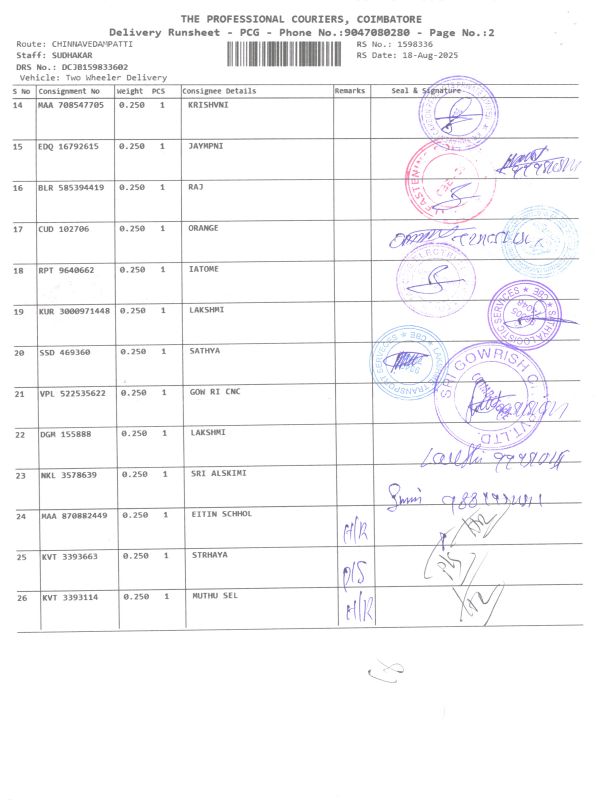 THE PROFESSIONAL COURIERS, COIMBATORE
Delivery Runsheet - PCG - Phone No.:9047080280 - Page No.:2
Route: CHINNAVEDAMPATTI RS No.: 1598336
Staff: SUDHAKAR RS Date: 18-Aug-2025
DRS No.: DCJB159833602
Vehicle: Two Wheeler Delivery
S No Consignment No Weight PCS Consignee Details Remarks Seal & Signature
14 MAA 708547705 0.250 1 KRISHVNI
15 EDQ 16792615 0.250 1 JAYMPNI
EASTERN
16 BLR 585394419 0.250 1 RAJ
17 CUD 102706 0.250 1 ORANGE
18 RPT 9640662 0.250 1 IATOME
ELECTR
19 KUR 3000971448 0.250 1 LAKSHMI
SATHYALOGISTIC SERVICES ★ CBE ★
20 SSD 469360 0.250 1 SATHYA
TRANSPORT SERVICES ★ CBE ★
21 VPL 522535622 0.250 1 GOW RI CNC
SRI GOWRISH C PVT.LTD
22 DGM 155888 0.250 1 LAKSHMI
23 NKL 3578639 0.250 1 SRI ALSKIMI
24 MAA 870882449 0.250 1 EITIN SCHHOL H/R
25 KVT 3393663 0.250 1 STRHAYA P/S
26 KVT 3393114 0.250 1 MUTHU SEL H/R